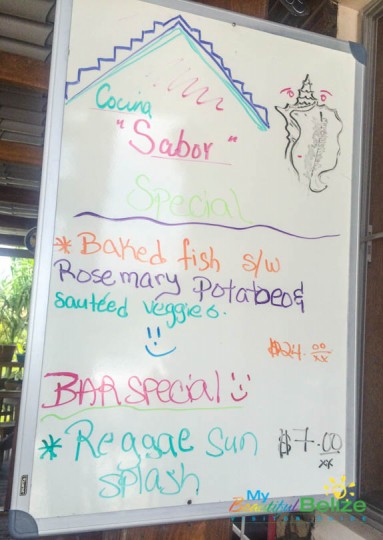 Cocina
"Sabor"
Special
* Baked fish s/w
Rosemary Potatoes &
sautéed veggies.
$24.00
xx
BAR special
* Reggae Sun $7.00
xx
splash
My
Beautiful Belize